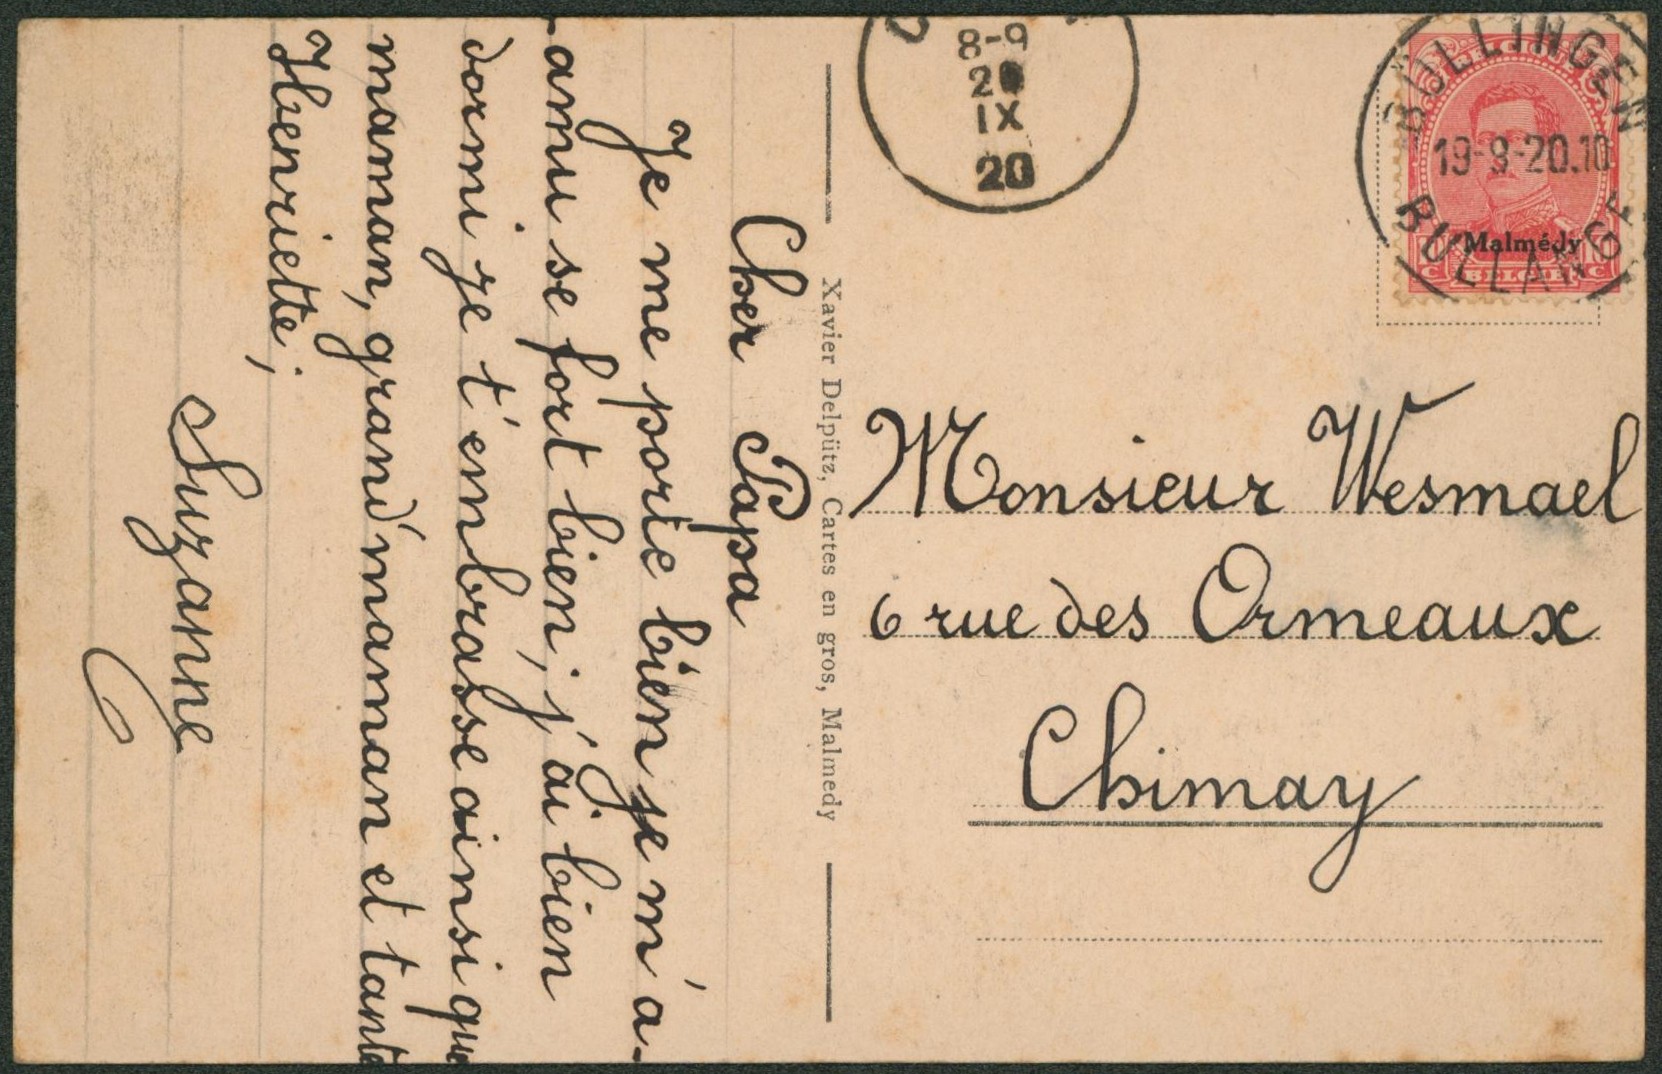 Cher Papa
Je me porte bien je m'a-
amuse fort bien, j'ai bien
dormi je t'embrasse ainsi que
maman, grand'maman et tante
Henriette,
Suzanne
Xavier Delpütz, Cartes en gros, Malmedy
8-9
20
IX
20
BÜLLINGEN
19-9-20.10
BULLANGE
BELGIQUE
Malmédy
BELGIË
Monsieur Wesmael
6 rue des Ormeaux
Chimay